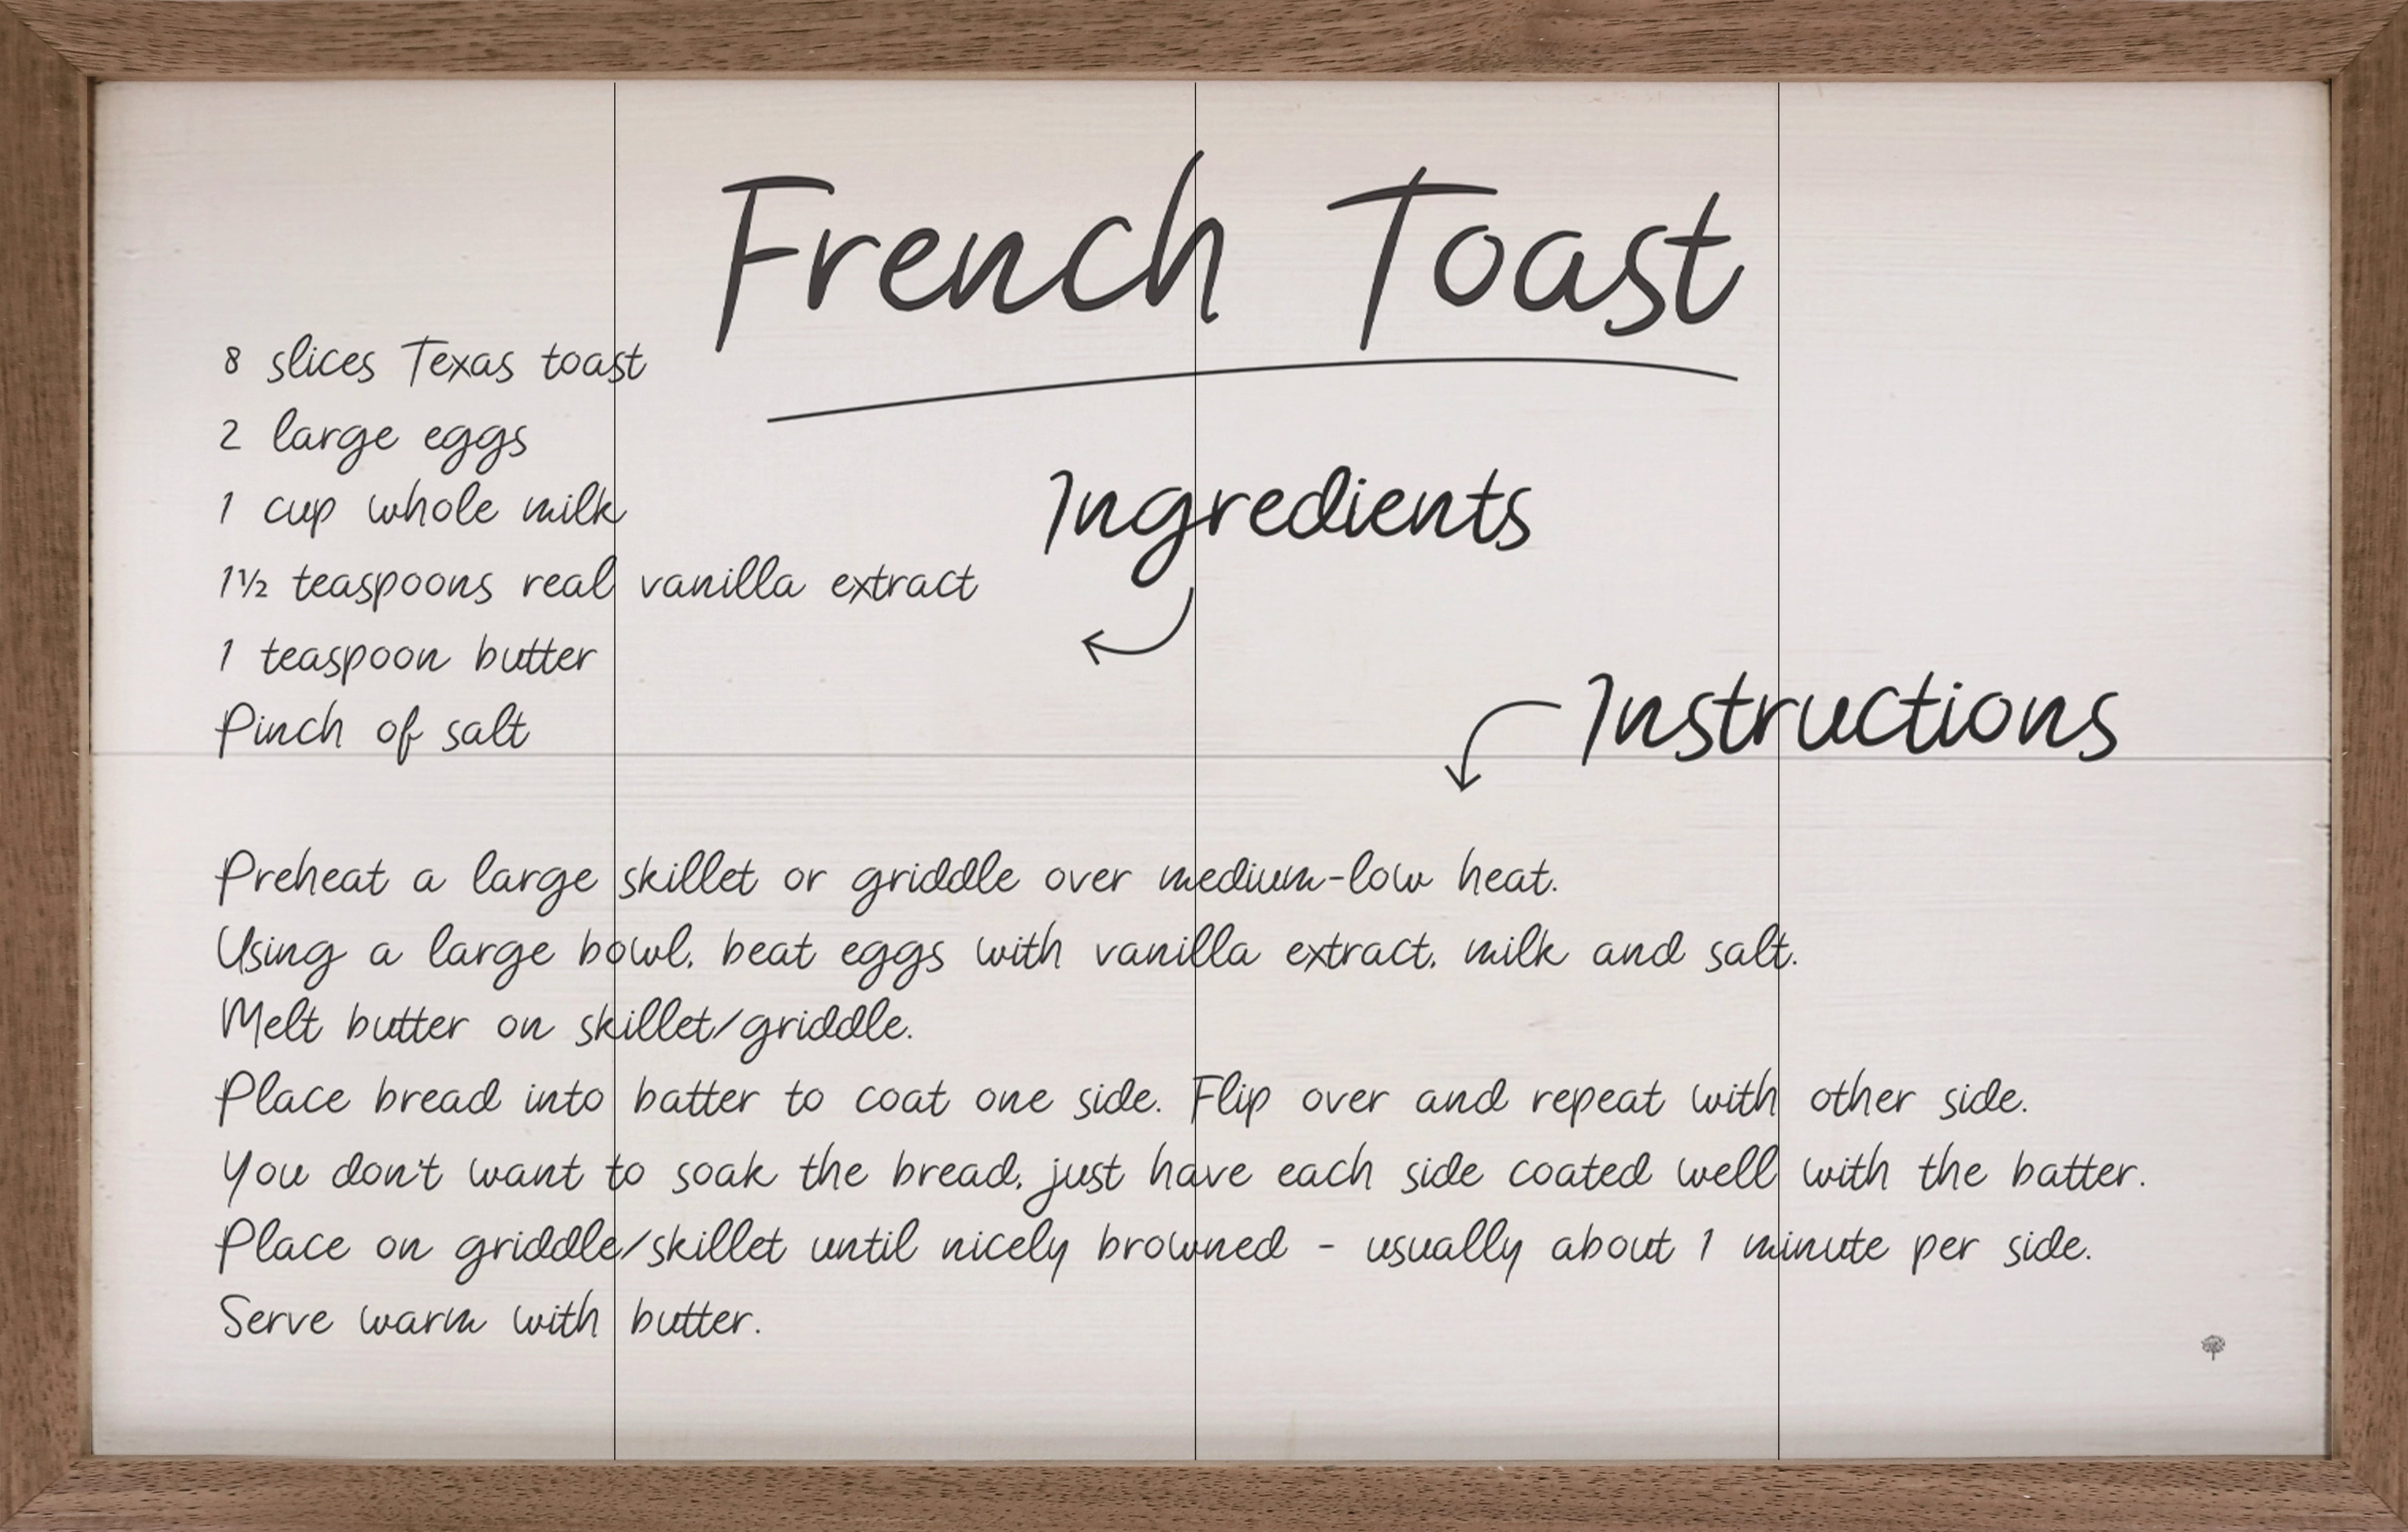 French Toast
Ingredients
8 slices Texas toast
2 large eggs
1 cup whole milk
1½ teaspoons real vanilla extract
1 teaspoon butter
Pinch of salt
Instructions
Preheat a large skillet or griddle over medium-low heat.
Using a large bowl, beat eggs with vanilla extract, milk and salt.
Melt butter on skillet/griddle.
Place bread into batter to coat one side. Flip over and repeat with other side.
You don't want to soak the bread, just have each side coated well with the batter.
Place on griddle/skillet until nicely browned - usually about 1 minute per side.
Serve warm with butter.